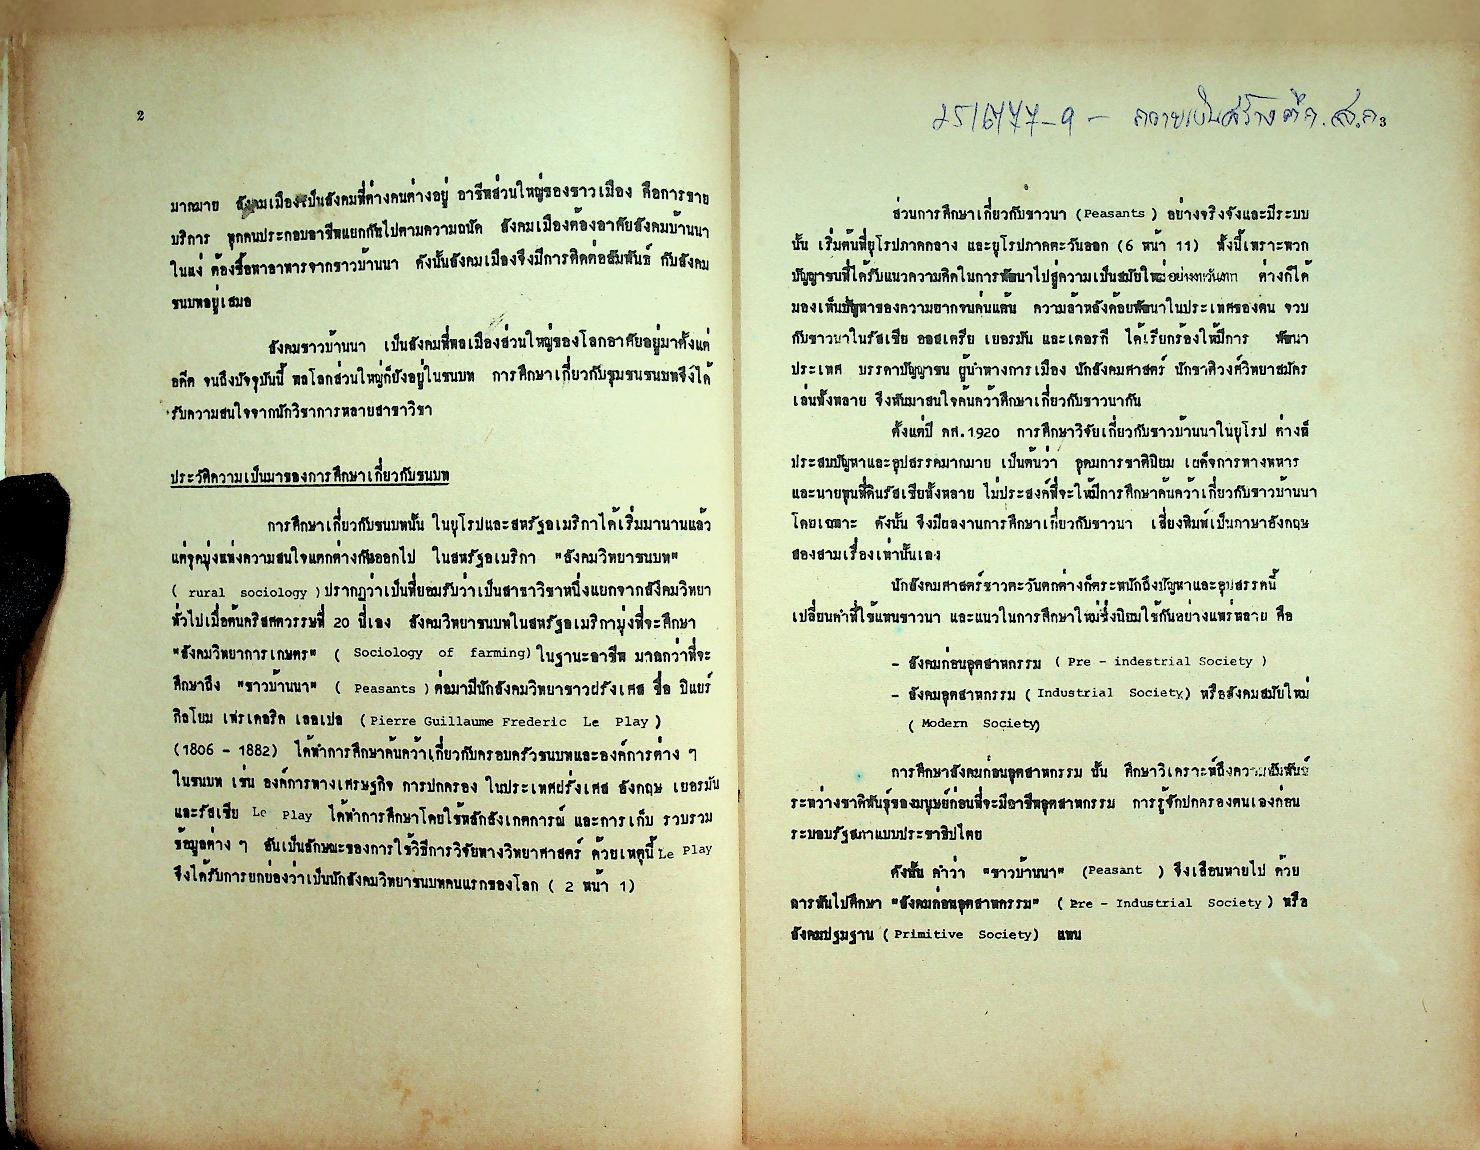 2
มากมาย สังคมเมืองเป็นสังคมที่ต่างคนต่างอยู่ อาชีพส่วนใหญ่ของชาวเมือง คือการขาย
บริการ ทุกคนประกอบอาชีพแยกกันไปตามความถนัด สังคมเมืองต้องอาศัยสังคมบ้านนา
ในแง่ ต้องซื้อหาอาหารจากชาวบ้านนา ดังนั้นสังคมเมืองจึงมีการติดต่อสัมพันธ์ กับสังคม
ชนบทอยู่เสมอ
สังคมชาวบ้านนา เป็นสังคมที่พลเมืองส่วนใหญ่ของโลกอาศัยอยู่มาตั้งแต่
อดีต จนถึงปัจจุบันนี้ พลโลกส่วนใหญ่ก็ยังอยู่ในชนบท การศึกษาเกี่ยวกับชุมชนชนบทจึงได้
รับความสนใจจากนักวิชาการหลายสาขาวิชา
ประวัติความเป็นมาของการศึกษาเกี่ยวกับชนบท
การศึกษาเกี่ยวกับชนบทนั้น ในยุโรปและสหรัฐอเมริกาได้เริ่มมานานแล้ว
แต่จุดมุ่งแห่งความสนใจแตกต่างกันออกไป ในสหรัฐอเมริกา "สังคมวิทยาชนบท"
( rural sociology ) ปรากฏว่าเป็นที่ยอมรับว่าเป็นสาขาวิชาหนึ่งแยกจากสังคมวิทยา
ทั่วไปเมื่อต้นคริสศตวรรษที่ 20 นี่เอง สังคมวิทยาชนบทในสหรัฐอเมริกามุ่งที่จะศึกษา
"สังคมวิทยาการเกษตร" ( Sociology of farming) ในฐานะอาชีพ มากกว่าที่จะ
ศึกษาถึง "ชาวบ้านนา" ( Peasants ) ต่อมามีนักสังคมวิทยาชาวฝรั่งเศส ชื่อ ปิแยร์
กิลโยม เฟรเดอริค เลอเปล (Pierre Guillaume Frederic Le Play )
(1806 - 1882) ได้ทำการศึกษาค้นคว้าเกี่ยวกับครอบครัวชนบทและองค์การต่าง ๆ
ในชนบท เช่น องค์การทางเศรษฐกิจ การปกครอง ในประเทศฝรั่งเศส อังกฤษ เยอรมัน
และรัสเซีย Le Play ได้ทำการศึกษาโดยใช้หลักสังเกตการณ์ และการเก็บ รวบรวม
ข้อมูลต่าง ๆ อันเป็นลักษณะของการใช้วิธีการวิจัยทางวิทยาศาสตร์ ด้วยเหตุนี้ Le Play
จึงได้รับการยกย่องว่าเป็นนักสังคมวิทยาชนบทคนแรกของโลก ( 2 หน้า 1)
3
ส่วนการศึกษาเกี่ยวกับชาวนา (Peasants ) อย่างจริงจังและมีระบบ
นั้น เริ่มต้นที่ยุโรปภาคกลาง และยุโรปภาคตะวันออก (6 หน้า 11) ทั้งนี้เพราะพวก
ปัญญาชนที่ได้รับแนวความคิดในการพัฒนาไปสู่ความเป็นสมัยใหม่อย่างตะวันตก ต่างก็ได้
มองเห็นปัญหาของความยากจนค่นแค้น ความล้าหลังด้อยพัฒนาในประเทศของตน จวบ
กับชาวนาในรัสเซีย ออสเตรีย เยอรมัน และเตอรกี ได้เรียกร้องให้มีการ พัฒนา
ประเทศ บรรดาปัญญาชน ผู้นำทางการเมือง นักสังคมศาสตร์ นักชาติวงศ์วิทยาสมัคร
เล่นทั้งหลาย จึงหันมาสนใจค้นคว้าศึกษาเกี่ยวกับชาวนากัน
ตั้งแต่ปี คศ.1920 การศึกษาวิจัยเกี่ยวกับชาวบ้านนาในยุโรป ต่างก็
ประสบปัญหาและอุปสรรคมากมาย เป็นต้นว่า อุดมการชาตินิยม เผด็จการทางทหาร
และนายทุนที่ดินรัสเซียทั้งหลาย ไม่ประสงค์ที่จะให้มีการศึกษาค้นคว้าเกี่ยวกับชาวบ้านนา
โดยเฉพาะ ดังนั้น จึงมีผลงานการศึกษาเกี่ยวกับชาวนา เสี่ยงพิมพ์เป็นภาษาอังกฤษ
สองสามเรื่องเท่านั้นเอง
นักสังคมศาสตร์ชาวตะวันตกต่างก็ตระหนักถึงปัญหาและอุปสรรคนี้
เปลี่ยนคำที่ใช้แทนชาวนา และแนวในการศึกษาใหม่ซึ่งนิยมใช้กันอย่างแพร่หลาย คือ
- สังคมก่อนอุตสาหกรรม ( Pre - indestrial Society )
- สังคมอุตสาหกรรม ( Industrial Society) หรือสังคมสมัยใหม่
( Modern Society)
การศึกษาสังคมก่อนอุตสาหกรรม นั้น ศึกษาวิเคราะห์ถึงความสัมพันธ์
ระหว่างชาติพันธุ์ของมนุษย์ก่อนที่จะมีอาชีพอุตสาหกรรม การรู้จักปกครองตนเองก่อน
ระบอบรัฐสภาแบบประชาธิปไตย
ดังนั้น คำว่า "ชาวบ้านนา" (Peasant ) จึงเลือนหายไป ด้วย
การหันไปศึกษา "สังคมก่อนอุตสาหกรรม" ( Pre - Industrial Society ) หรือ
สังคมปฐมฐาน ( Primitive Society) แทน